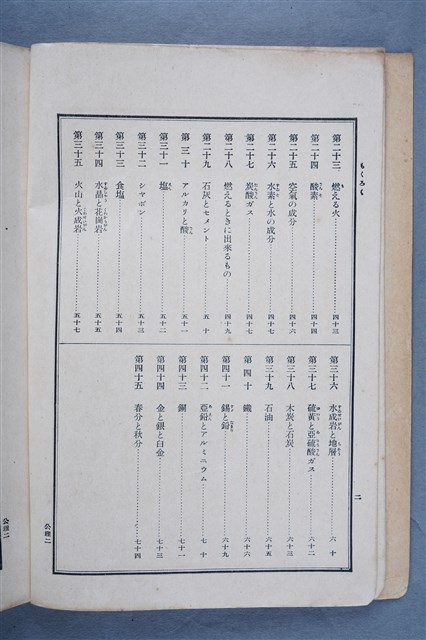 もくろく
第二十三 燃える火……四十三
第二十四 酸素……四十四
第二十五 空氣の成分……四十六
第二十六 水素と水の成分……四十七
第二十七 炭酸ガス……四十七
第二十八 燃えるときに出來るもの……四十九
第二十九 石灰とセメント……五十
第三十 アルカリと酸……五十一
第三十一 塩……五十二
第三十二 シャボン……五十三
第三十三 食塩……五十四
第三十四 水晶と花崗岩……五十五
第三十五 火山と火成岩……五十七
第三十六 水成岩と地層……六十
第三十七 硫黄と亞硫酸ガス……六十二
第三十八 木炭と石炭……六十三
第三十九 石油……六十五
第四十 鐵……六十六
第四十一 錫と鉛……六十九
第四十二 亞鉛とアルミニウム……七十
第四十三 銅……七十一
第四十四 金と銀と白金……七十三
第四十五 春分と秋分……七十四
二
公理二
公理二